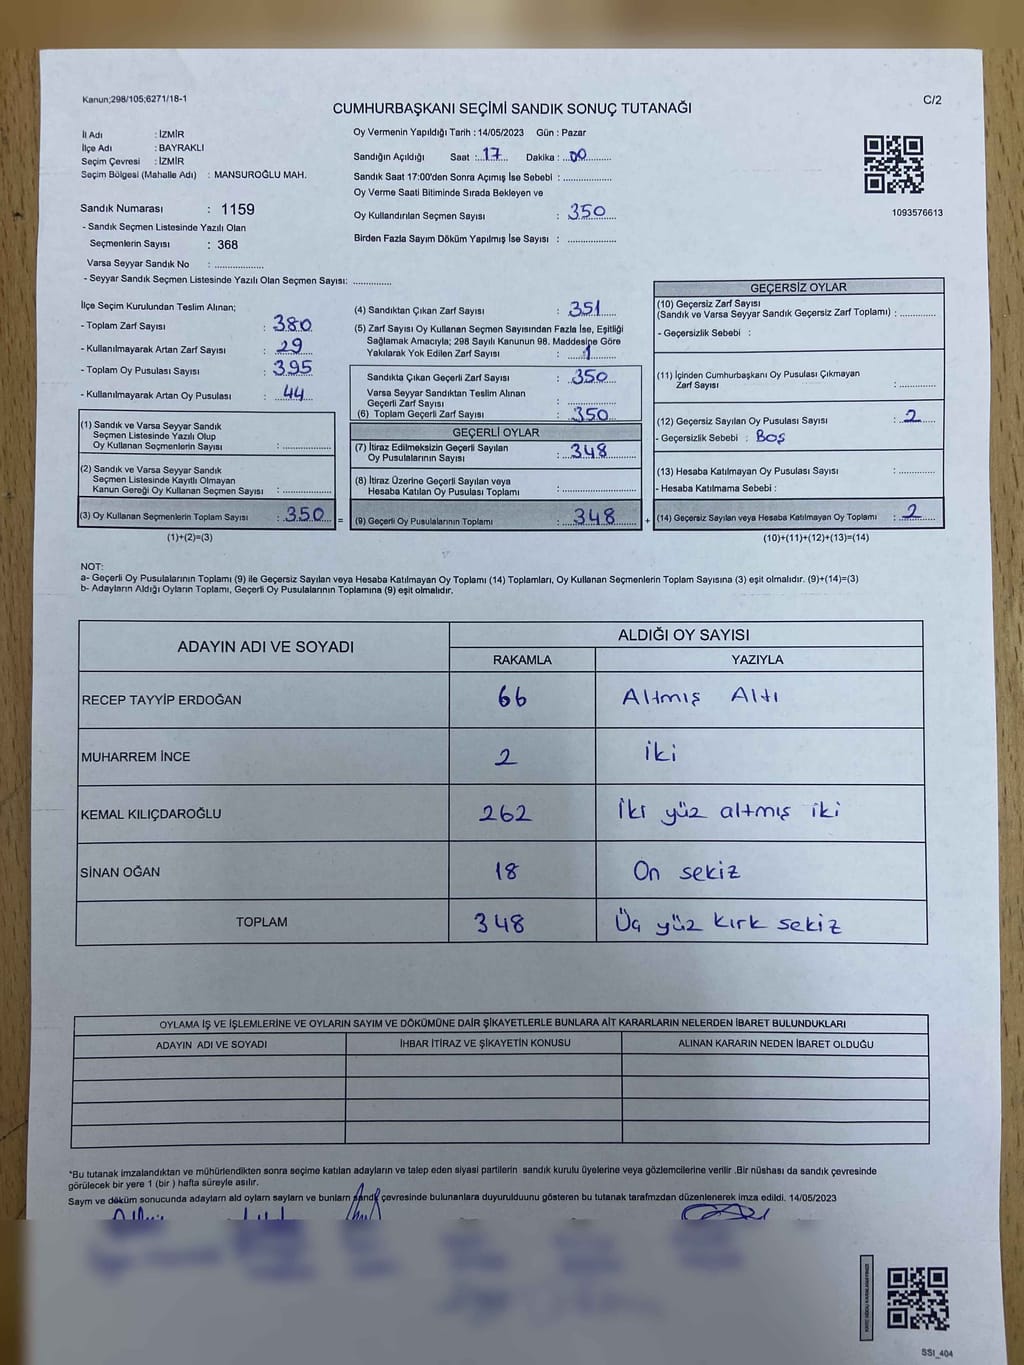 Kanun;298/105;6271/18-1
CUMHURBAŞKANI SEÇİMİ SANDIK SONUÇ TUTANAĞI
C/2
İl Adı : İZMİR
İlçe Adı : BAYRAKLI
Seçim Çevresi : İZMİR
Seçim Bölgesi (Mahalle Adı) : MANSUROĞLU MAH.
Sandık Numarası : 1159
- Sandık Seçmen Listesinde Yazılı Olan
Seçmenlerin Sayısı : 368
Varsa Seyyar Sandık No : ................
- Seyyar Sandık Seçmen Listesinde Yazılı Olan Seçmen Sayısı: ............
Oy Vermenin Yapıldığı Tarih : 14/05/2023 Gün : Pazar
Sandığın Açıldığı Saat : 17 Dakika : 00
Sandık Saat 17:00'den Sonra Açımış İse Sebebi : ................
Oy Verme Saati Bitiminde Sırada Bekleyen ve
Oy Kullandırılan Seçmen Sayısı : 350
Birden Fazla Sayım Döküm Yapılmış İse Sayısı : ................
1093576613
İlçe Seçim Kurulundan Teslim Alınan;
- Toplam Zarf Sayısı : 380
- Kullanılmayarak Artan Zarf Sayısı : 29
- Toplam Oy Pusulası Sayısı : 395
- Kullanılmayarak Artan Oy Pusulası : 44
(1) Sandık ve Varsa Seyyar Sandık
Seçmen Listesinde Yazılı Olup
Oy Kullanan Seçmenlerin Sayısı : ................
(2) Sandık ve Varsa Seyyar Sandık
Seçmen Listesinde Kayıtlı Olmayan
Kanun Gereği Oy Kullanan Seçmen Sayısı : ................
(3) Oy Kullanan Seçmenlerin Toplam Sayısı : 350 =
(1)+(2)=(3)
(4) Sandıktan Çıkan Zarf Sayısı : 351
(5) Zarf Sayısı Oy Kullanan Seçmen Sayısından Fazla İse, Eşitliği
Sağlamak Amacıyla; 298 Sayılı Kanunun 98. Maddesine Göre
Yakılarak Yok Edilen Zarf Sayısı : 1
Sandıkta Çıkan Geçerli Zarf Sayısı : 350
Varsa Seyyar Sandıktan Teslim Alınan
Geçerli Zarf Sayısı : ................
(6) Toplam Geçerli Zarf Sayısı : 350
GEÇERLİ OYLAR
(7) İtiraz Edilmeksizin Geçerli Sayılan
Oy Pusulalarının Sayısı : 348
(8) İtiraz Üzerine Geçerli Sayılan veya
Hesaba Katılan Oy Pusulası Toplamı : ................
(9) Geçerli Oy Pusulalarının Toplamı : 348 +
GEÇERSİZ OYLAR
(10) Geçersiz Zarf Sayısı
(Sandık ve Varsa Seyyar Sandık Geçersiz Zarf Toplamı) : ............
- Geçersizlik Sebebi :
(11) İçinden Cumhurbaşkanı Oy Pusulası Çıkmayan
Zarf Sayısı : ............
(12) Geçersiz Sayılan Oy Pusulası Sayısı : 2
- Geçersizlik Sebebi : BOŞ
(13) Hesaba Katılmayan Oy Pusulası Sayısı : ............
- Hesaba Katılmama Sebebi :
(14) Geçersiz Sayılan veya Hesaba Katılmayan Oy Toplamı : 2
(10)+(11)+(12)+(13)=(14)
NOT:
a- Geçerli Oy Pusulalarının Toplamı (9) ile Geçersiz Sayılan veya Hesaba Katılmayan Oy Toplamı (14) Toplamları, Oy Kullanan Seçmenlerin Toplam Sayısına (3) eşit olmalıdır. (9)+(14)=(3)
b- Adayların Aldığı Oyların Toplamı, Geçerli Oy Pusulalarının Toplamına (9) eşit olmalıdır.
ADAYIN ADI VE SOYADI ALDIĞI OY SAYISI
RAKAMLA YAZIYLA
RECEP TAYYİP ERDOĞAN 66 Altmış Altı
MUHARREM İNCE 2 İki
KEMAL KILIÇDAROĞLU 262 İki yüz altmış iki
SİNAN OĞAN 18 On sekiz
TOPLAM 348 Üç yüz kırk sekiz
OYLAMA İŞ VE İŞLEMLERİNE VE OYLARIN SAYIM VE DÖKÜMÜNE DAİR ŞİKAYETLERLE BUNLARA AİT KARARLARIN NELERDEN İBARET BULUNDUKLARI
ADAYIN ADI VE SOYADI İHBAR İTİRAZ VE ŞİKAYETİN KONUSU ALINAN KARARIN NEDEN İBARET OLDUĞU
*Bu tutanak imzalandıktan ve mühürlendikten sonra seçime katılan adayların ve talep eden siyasi partilerin sandık kurulu üyelerine veya gözlemcilerine verilir .Bir nüshası da sandık çevresinde
görülecek bir yere 1 (bir ) hafta süreyle asılır.
Sayım ve döküm sonucunda adayların ald oyların sayların ve bunların sandk çevresinde bulunanlara duyurulduunu gösteren bu tutanak tarafımzdan düzenlenerek imza edildi. 14/05/2023
SSI_404